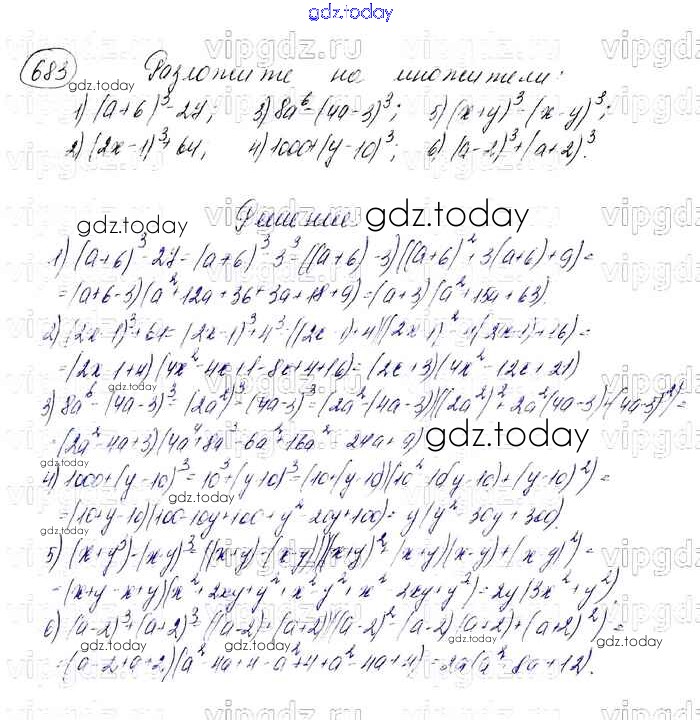 gdz.today
683 Разложите на множители:
1) (a+6)³-27; 3) 8a⁶-(4a-3)³; 5) (x+y)³-(x-y)³;
2) (2x-1)³+64; 4) 1000+(y-10)³; 6) (a-2)³+(a+2)³.
Решение:
1) (a+6)³-27=(a+6)³-3³=((a+6)-3)((a+6)²+3(a+6)+9)=
=(a+6-3)(a²+12a+36+3a+18+9)=(a+3)(a²+15a+63).
2) (2x-1)³+64=(2x-1)³+4³=((2x-1)+4)((2x-1)²-4(2x-1)+16)=
=(2x-1+4)(4x²-4x+1-8x+4+16)=(2x+3)(4x²-12x+21)
3) 8a⁶-(4a-3)³=(2a²)³-(4a-3)³=(2a²-(4a-3))((2a²)²+2a²(4a-3)+(4a-3)²)=
=(2a²-4a+3)(4a⁴+8a³-6a²+16a²-24a+9)
4) 1000+(y-10)³=10³+(y-10)³=(10+(y-10))(10²-10(y-10)+(y-10)²)=
=(10+y-10)(100-10y+100+y²-20y+100)=y(y²-30y+300).
5) (x+y³)-(x-y)³=((x+y)-(x-y))((x+y)²+(x+y)(x-y)+(x-y)²)=
=(x+y-x+y)(x²+2xy+y²+x²-y²+x²-2xy+y²)=2y(3x²+y²)
6) (a-2)³+(a+2)³=((a-2)+(a+2))((a-2)²-(a-2)(a+2)+(a+2)²)=
=(a-2+a+2)(a²-4a+4-a²+4+a²-4a+4)=2a(a²-8a+12).